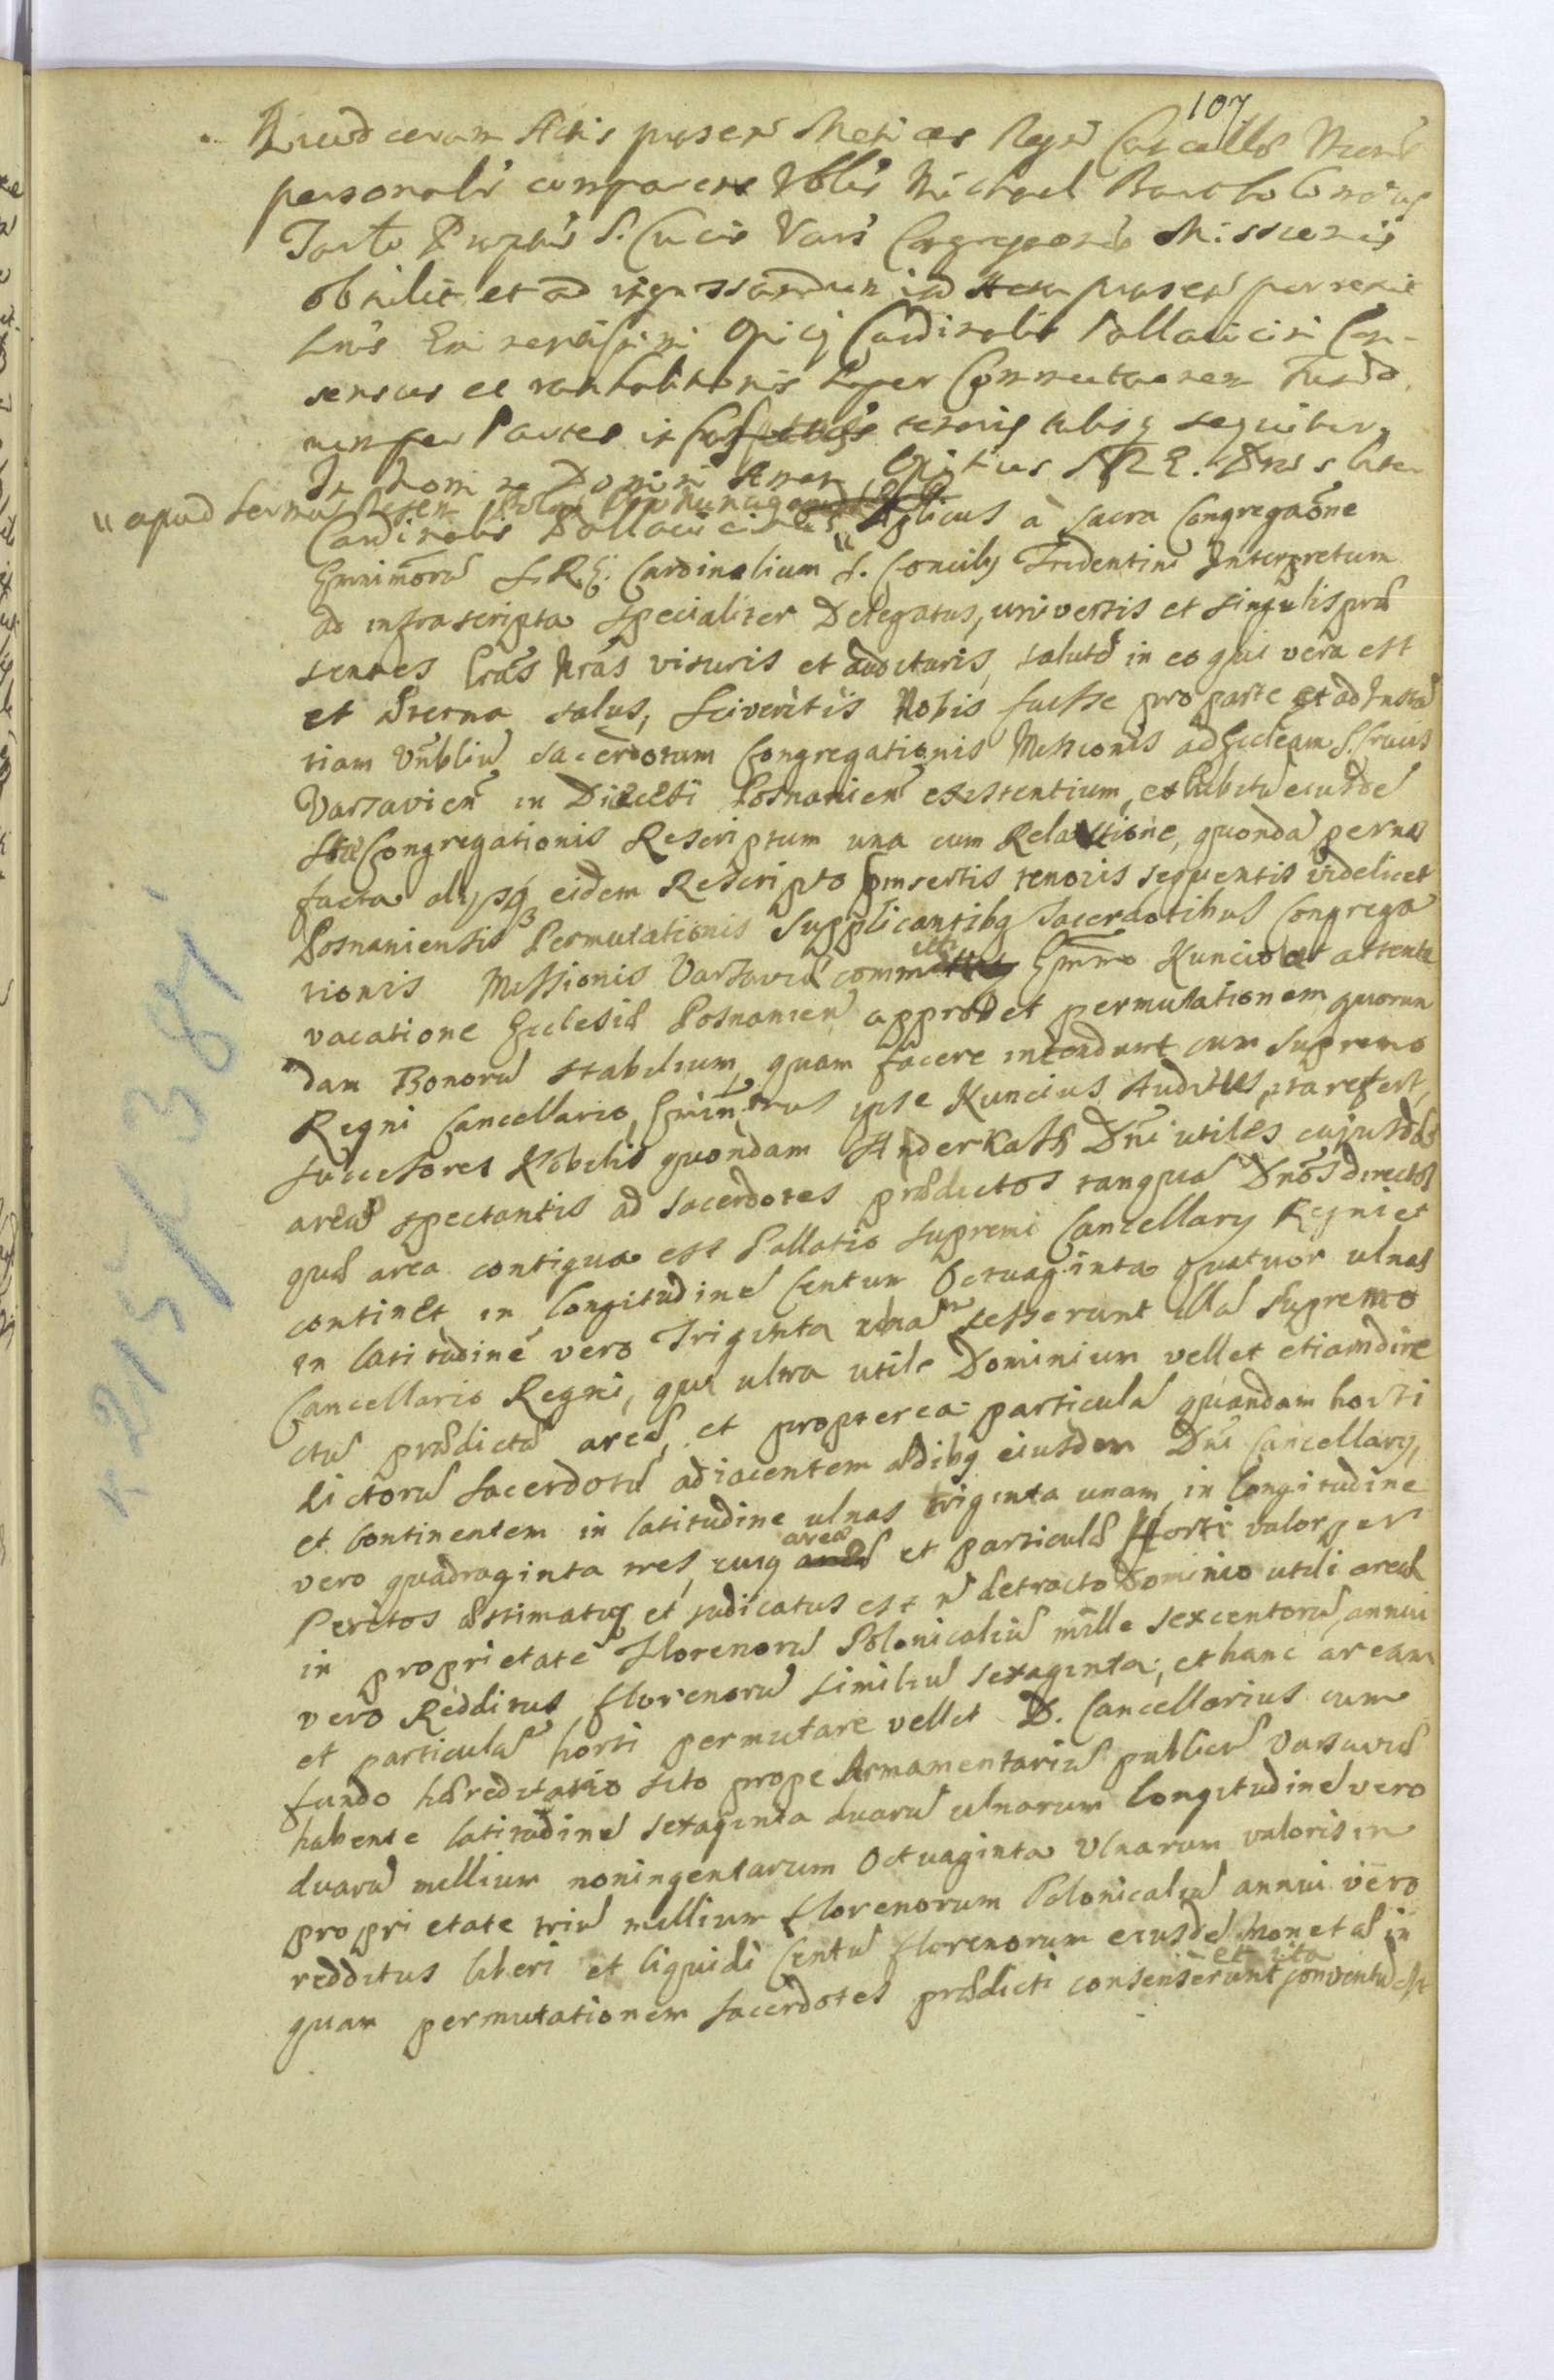 107
Ad Actis præsen Metrices Regni Cancellar
personalr comparens Vbls Michael Bartholomæus
Tarlo Præptus S. Crucis Vars Congregaonis Missionis
obtulit et ad ingrossandum in Acta præsen porrexit
Eminentissimi Opicij Cardinalis Pallavicini Con-
sensus et super Commutaonem Fundo
rum per Partes in tenoris talisq sequitur.
In Nomine Domini Amen, Opitius S.R.E. Præsbiter
" apud Sermum Regem Poloniæ
Cardinalis Pallavicinus " Aplicus à Sacra Congregaõne
Emin̄morũ S.R.E. Cardinalium S. Concilij Tridentini Interpretum
ad infrascripta specialiter Delegatus, universis et singulis præ
sentes Lrãs Nrãs visuris et audituris, salutẽ in eo qui vera est
et æterna salus, Sciveritis Nobis fuisse pro parte et ad Insta
tiam Vn̄bliũ Sacerdotum Congregationis Missionis ad Eccleam S. Crucis
Varsavien̄ in Diæcesi Posnanien̄ existentium, exhibitũ eiusdẽ
Sæ Congregationis Rescriptum una cum Relatione, quondã per nos
facta eidem Rescripto insertis tenoris sequentis videlicet
Posnaniensis Permutationis Supplicantibq Sacerdotibus Congrega
tionis Missionis Varsaviæ committ Emmo Nuncio ut attenta
vacatione Ecclesiæ Posnanien̄ approbet permutationem quorun
dam Bonorũ stabilium, quam facere intendunt cum Supremo
Regni Cancellario, Emin̄mus ipse Nuncius Auditus, ita refert,
successores Nobilis quondam Anderkass Dn̄i utiles cujusdã
areæ spectantis ad Sacerdotes prædictos tanquã Dnõs directos
quæ area contigua est Pallatio supremi Cancellarij Regni et
continet in longitudinẽ Centum Octuaginta quatuor ulnas
in latitudinẽ vero Triginta unam cesserunt illã Supremo
Cancellario Regni, qui ultra utile Dominium vellet etiam dire
ctũ prædictæ areæ, et propterea particulã quandam horti
dictorũ Sacerdotũ adiacentem ædibq eiusdem Dn̄i Cancellarij,
et continentem in latitudine ulnas triginta unam, in longitudine
vero quadraginta tres, cuiq areæ et particulæ Horti valor per
Peritos æstimatq et judicatus est ñ detracto Dominio utili areæ
in proprietate Florenorũ Polonicaliũ mille sexcentorũ, annui
vero Redditus florenorũ similiũ sexaginta, et hanc aream
et particulã horti permutare vellet D. Cancellarius cum
fundo hæreditario sito prope Armamentariũ publicũ Varsaviæ
habente latitudinẽ sexaginta duarũ ulnarum longitudinẽ vero
duarũ millium noningentarum Octuaginta Ulnarum valoris in
proprietate triũ millium florenorum Polonicaliũ annui vero
redditus liberi et liquidi Centũ florenorum eiusdẽ Monetæ in
quam permutationem Sacerdotes prædicti consenserunt et ita conventũ est